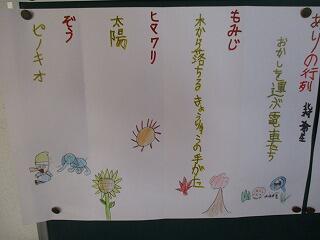 ありの行列
おかしを運ぶ電車たち
もみじ
木から落ちるきょうりゅうの手がた
ヒマワリ
太陽
ぞう
ピノキオ